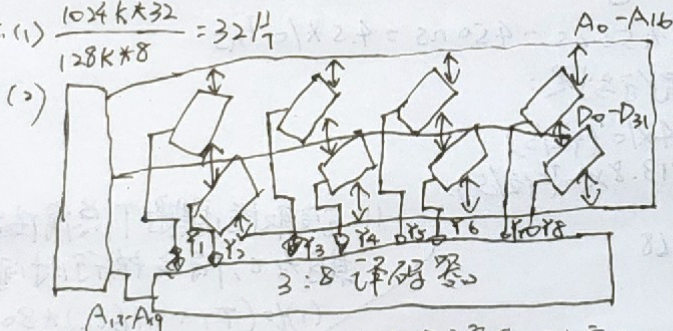 (1) 1024K*32 / 128K*8 = 32片
A0-A16
(2)
D0-D31
Y1 Y2 Y3 Y4 Y5 Y6 Y7 Y8
3:8译码器
A17-A19